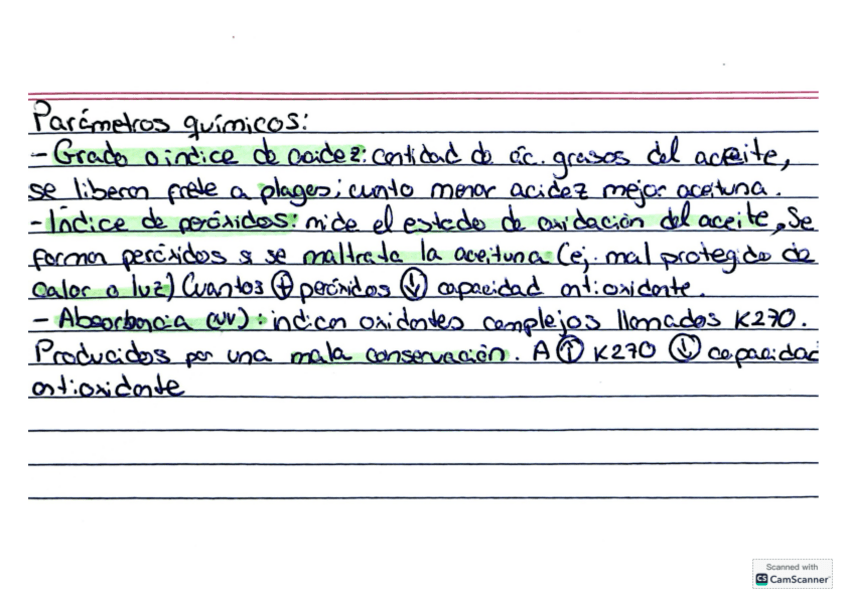 Parámetros químicos:
- Grado o indice de acidez: cantidad de ác. grasos del aceite,
se liberan frete a plagas; cuanto menor acidez mejor aceituna.
- Indice de peróxidos: mide el estado de oxidación del aceite, Se
forman peróxidos si se maltrata la aceituna (ej. mal protegido de
calor o luz) Cuantos ⊕ peróxidos ↓ capacidad antioxidante.
- Absorbancia (uv): indican oxidantes complejos llamados K270.
Producidos por una mala conservación. A ↑ K270 ↓ capacidad
antioxidante
Scanned with
CS CamScanner